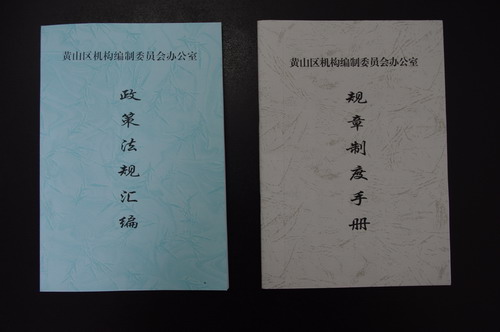 黄山区机构编制委员会办公室
政策法规汇编
黄山区机构编制委员会办公室
规章制度手册